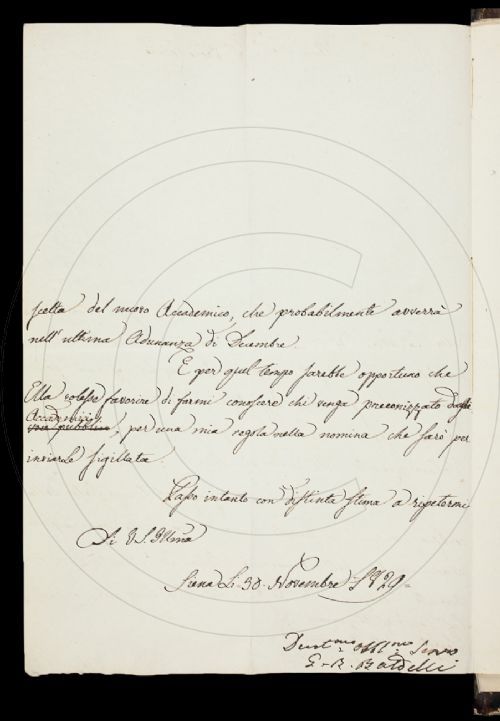 scelta del nuovo Accademico, che probabilmente avverrà
nell'ultima Adunanza di Decembre.
E per quel tempo sarebbe opportuno che
Ella volesse favorire di farmi conoscere chi venga preconizzato dagli
Accademici
voce pubblica; per una mia regola nella nomina che farò per
inviarle sigillata.
Passo intanto con distinta stima a ripetermi
Di V. S. Illma
Siena Li 30. Novembre 1829.
Devotmo Obblmo Servo
G. R. Baldelli